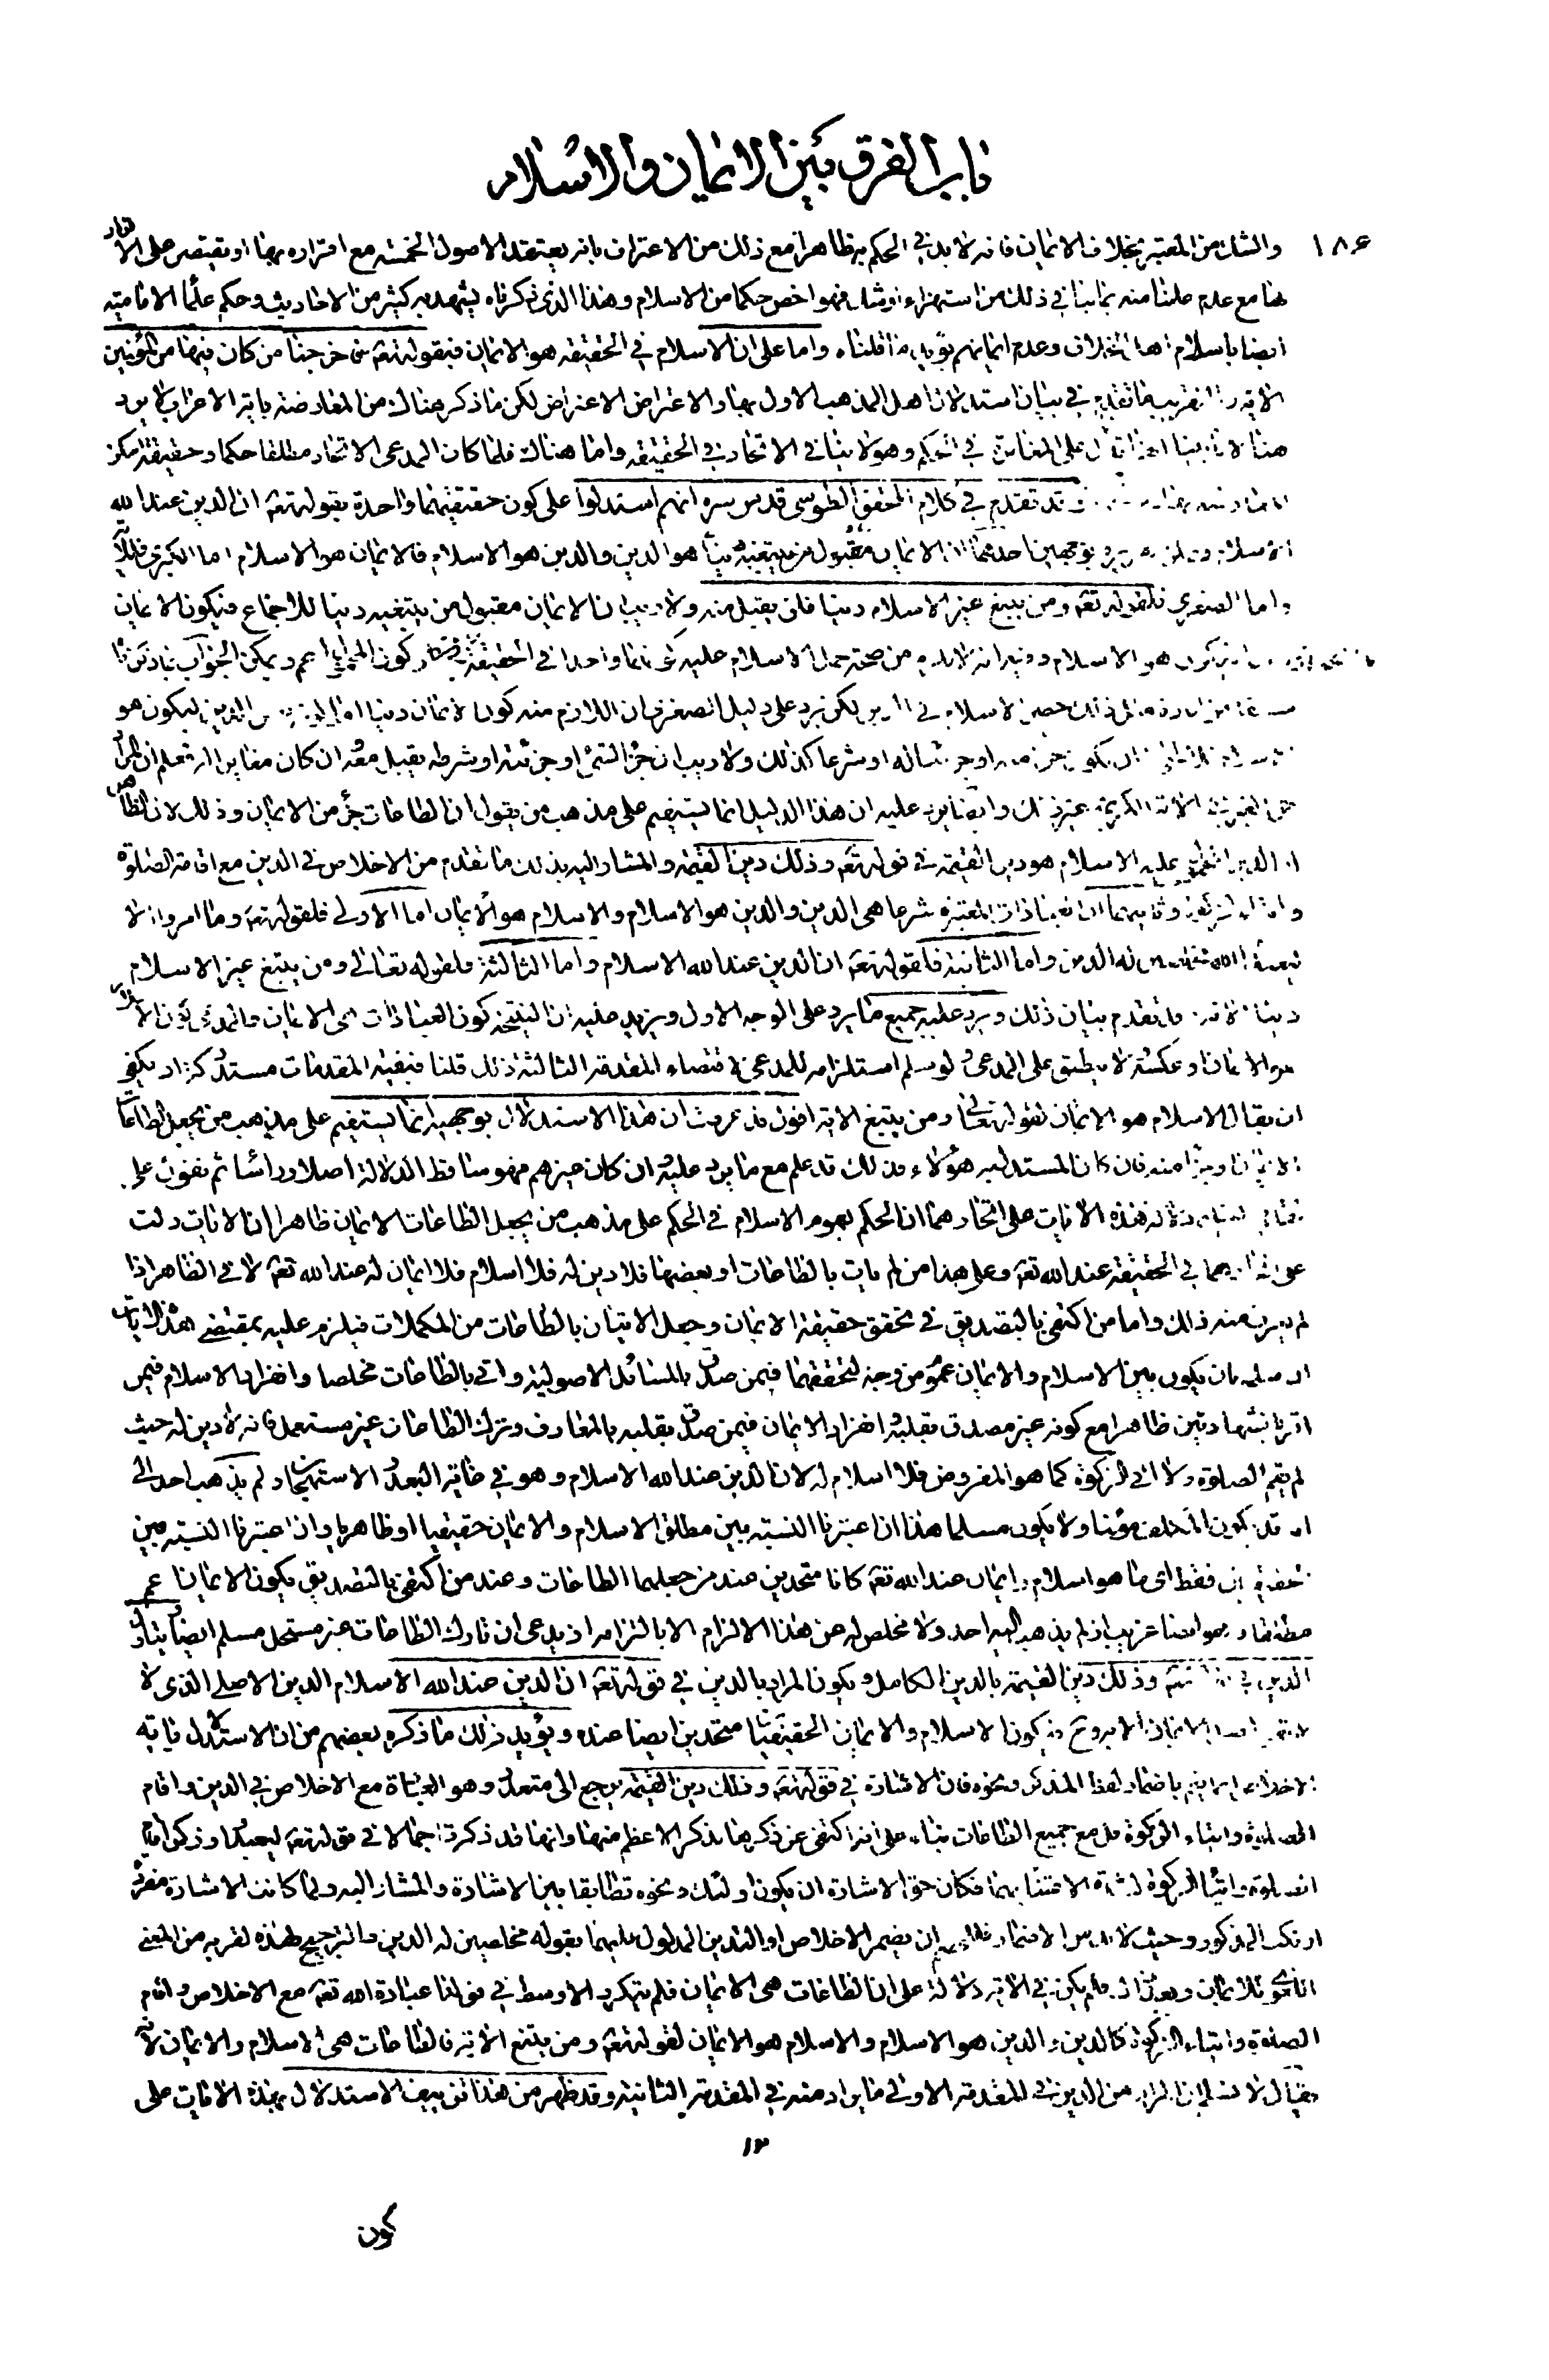 باب الفرق بين الايمان والاسلام
١٨٤ والشك من المعتبر بخلاف الايمان فانه لا بد في الحكم به ظاهرا مع ذلك من الاعتراف بانه يعتقد الاصول الخمسة مع اقراره بها او يقتصر على الاقرار
هنا مع عدم علمنا منه بما ينافي ذلك من استهزاء او شك فهو اخص حكما من الاسلام وهذا الذي ذكرناه يشهد به كثير من الاحاديث وحكم علما الامامية
ايضا باسلام اهل الخلاف وعدم ايمانهم يؤيد ما قلناه واما على ان الاسلام في الحقيقة هو الايمان فبقوله تعه فاخرجنا من كان فيها من المؤمنين
الاية والتقريب ما تقدم في بيان استدلال اهل المذهب الاول بها والاعتراض الاعتراض لكن ما ذكر هناك من المعارضة باية الاعراب لا يرد
هنا لانا بينا انها تدل على المغايرة في الحكم وهو لا ينافي الاتحاد في الحقيقة واما هناك فلما كان المدعى الاتحاد مطلقا حكما وحقيقة
وقد تقدم في كلام المحقق الطوسي قدس سره انهم استدلوا على كون حقيقتهما واحدة بقوله تعه ان الدين عند الله
الاسلام بوجهين احدهما ان الايمان مقبول من يبتغيه دينا هو الدين والدين هو الاسلام فالايمان هو الاسلام اما الكبرى فللآية
واما الصغرى فلقوله تعه ومن يبتغ غير الاسلام دينا فلن يقبل منه ولا ريب ان الايمان مقبول من يبتغيه دينا للاجماع فيكون الايمان
هو الاسلام وفيه انه لا بد من صحة حمل الاسلام عليه كونهما واحدا في الحقيقة كون المحمول اعم ويمكن الجواب
حصر الاسلام في الدين لكن يرد على دليل الصغرى ان اللازم منه كون الايمان دينا اما الدين ليكون هو
ان يكون جزءا منه او جزئيا له او شرعا كذلك ولا ريب ان جزء الشئ او جزئيه او شرطه يقبل معه ان كان مغايرا له فعلم ان المراد
من الغير في الاية الكريمة غير ذلك وايضا يرد عليه ان هذا الدليل انما يستقيم على مذهب من يقول ان الطاعات جزء من الايمان وذلك لان الظاهر
ان الدين المحمول عليه الاسلام هو دين القيمة في قوله تعه وذلك دين القيمة والمشار اليه بذلك ما تقدم من الاخلاص في الدين مع اقامة الصلوة
وايتاء الزكوة وثانيهما ان العبادات المعتبرة شرعا هي الدين والدين هو الاسلام والاسلام هو الايمان اما الاولى فلقوله تعه وما امروا الا
ليعبدوا الله مخلصين له الدين واما الثانية فلقوله تعه ان الدين عند الله الاسلام واما الثالثة فلقوله تعالى ومن يبتغ غير الاسلام
دينا الاية وقد تقدم بيان ذلك ويرد عليه جميع ما يرد على الوجه الاول ويزيد عليه ان النتيجة كون العبادات هي الايمان والمدعى كون الاسلام
هو الايمان او عكسه لا ينطبق على المدعى ولو سلم استلزامه للمدعى لاقتضاء المقدمة الثالثة ذلك قلنا فبقية المقدمات مستدركة اذ يكفي
ان يقال الاسلام هو الايمان لقوله تعالى ومن يبتغ الاية اقول قد عرفت ان هذا الاستدلال بوجهيه انما يستقيم على مذهب من يجعل الطاعات
الايمان او جزءا منه فان كان المستدل به هؤلاء فذلك قد علم مع ما يرد عليه وان كان غيرهم فهو ساقط الدلالة اصلا وراسا ثم نقول على
دلالة هذه الايات على اتحادهما ان الحكم بعموم الاسلام في الحكم على مذهب من يجعل الطاعات الايمان ظاهر ان الايات دلت
على اتحادهما في الحقيقة عند الله تعه وعلى هذا من لم يات بالطاعات او بعضها فلا دين له فلا اسلام فلا ايمان له عند الله تعه لا في الظاهر اذا
لم يعرف منه ذلك واما من اكتفى بالتصديق في تحقق حقيقة الايمان وجعل الاتيان بالطاعات من المكملات فيلزم عليه بمقتضى هذه الايات
ان يكون بين الاسلام والايمان عموم من وجه لتحققهما فيمن صدق بالمسائل الاصولية واتى بالطاعات مخلصا وانفراد الاسلام فيمن
اقر بالشهادتين ظاهرا مع كونه غير مصدق بقلبه وانفراد الايمان فيمن صدق بقلبه بالمعارف وترك الطاعات غير مستحل فانه لا دين له حيث
لم يقم الصلوة ولا اتى الزكوة كما هو المفروض فلا اسلام له لان الدين عند الله الاسلام وهو في غاية البعد والاستهجان ولم يذهب احد الى
انه قد يكون المكلف مؤمنا ولا يكون مسلما هذا ان اعتبرنا النسبة بين مطلق الاسلام والايمان حقيقيا او ظاهريا وان اعتبرنا النسبة بين
الحقيقيين فقط اي ما هو اسلام وايمان عند الله تعه كانا متحدين عند من جعلهما الطاعات وعند من اكتفى بالتصديق يكون الايمان اعم
مطلقا وهو ايضا غريب اذ لم يذهب اليه احد ولا مخلص له عن هذا الالزام الا بالتزامه اذ يدعى ان تارك الطاعات غير مستحل مسلم ايضا بتاويل
الدين في قوله تعه وذلك دين القيمة بالدين الكامل ويكون المراد بالدين في قوله تعه ان الدين عند الله الاسلام الدين الاصلي الذي لا
يكون الاسلام والايمان الحقيقيان متحدين ايضا عنده ويؤيد ذلك ما ذكره بعضهم من ان الاستدلال باية
باضمار لهذا المذكر ونحوه فان الاشارة في قوله تعه وذلك دين القيمة يرجع الى متعدد وهو العبادة مع الاخلاص في الدين واقام
الصلوة وايتاء الزكوة بل مع جميع الطاعات بناء على انه اكتفى عن ذكرها بذكر الاعظم منها وانها قد ذكرت اجمالا في قوله تعه ليعبدوا وذكر اقام
الصلوة وايتاء الزكوة لشدة الاعتناء بهما فكان حق الاشارة ان يكون اولئك ونحوه تطابقا بين الاشارة والمشار اليه ولما كانت الاشارة مفردة
ارتكب المذكور وحيث لا بد من الاضمار ان يضمر الاخلاص او التدين المدلول عليهما بقوله مخلصين له الدين والترجيح لهذه لقربه من المعنى
اللغوي للايمان فلم يكن في الاية دلالة على ان الطاعات هي الايمان فلم يتكرر الاوسط في قولنا عبادة الله تعه مع الاخلاص واقام
الصلوة وايتاء الزكوة كالدين والدين هو الاسلام والاسلام هو الايمان لقوله تعه ومن يبتغ الاية فالطاعات هي الاسلام والايمان لانه
يقال لا نسلم ان المراد من الدين في المقدمة الاولى ما يراد منه في المقدمة الثانية وقد ظهر من هذا تزييف الاستدلال بهذه الايات على
١٢
كون